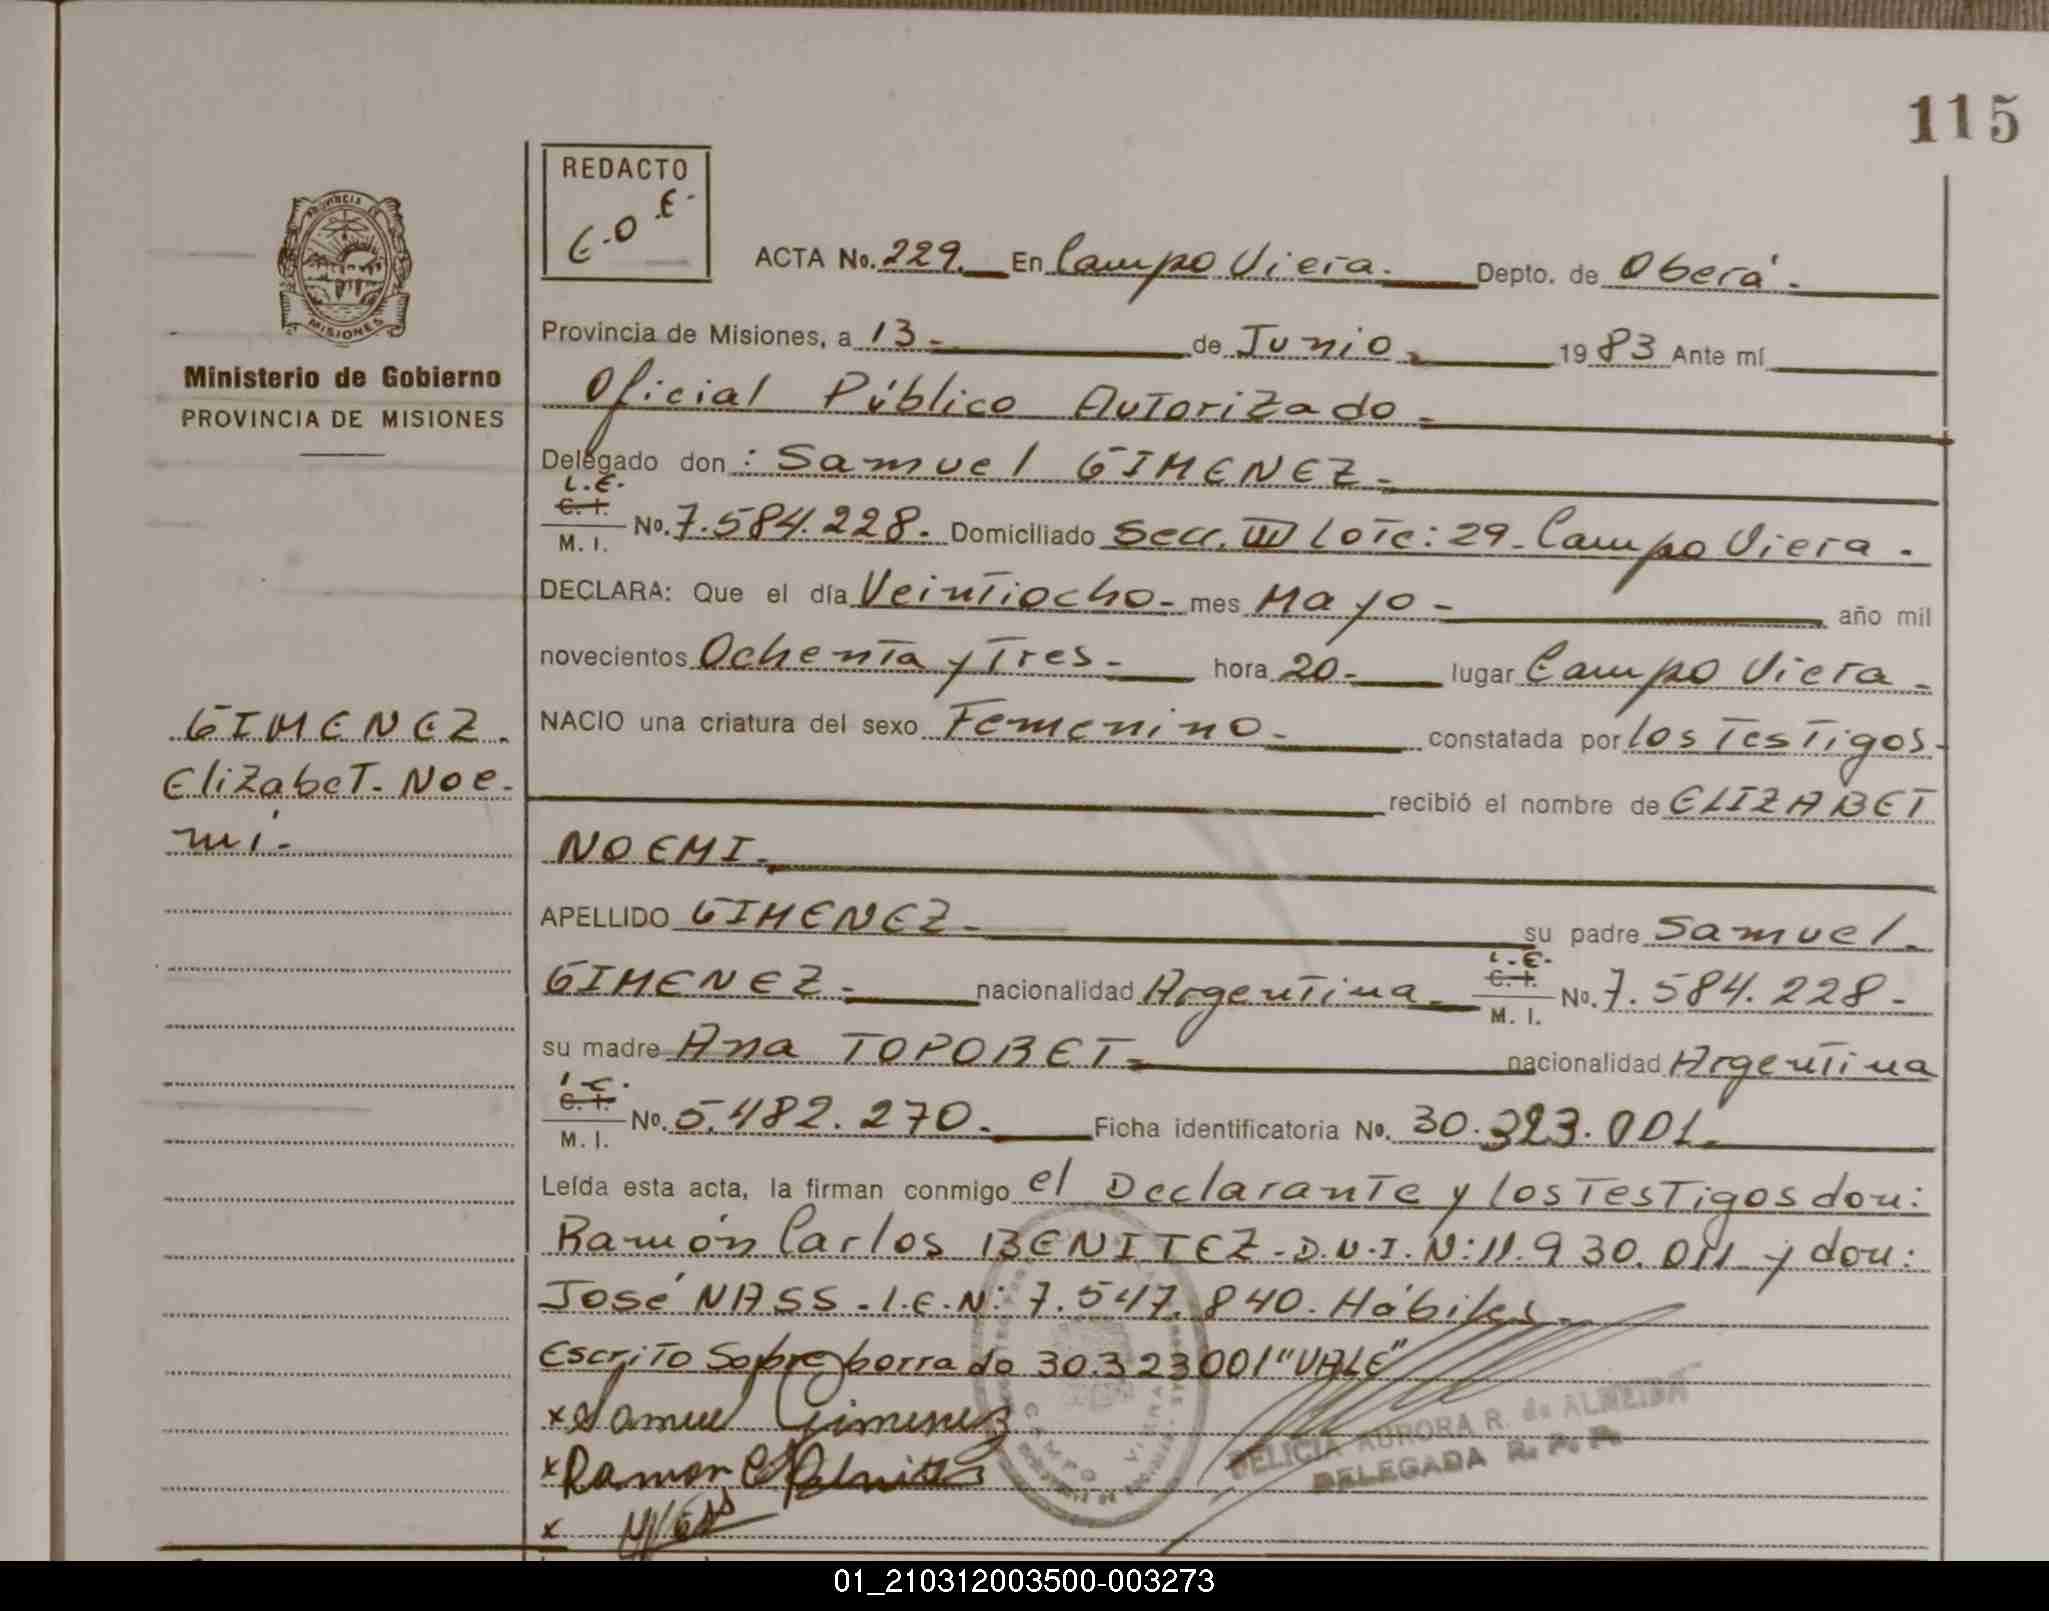 115
REDACTO
E.O E.
PROVINCIA DE
MISIONES
Ministerio de Gobierno
PROVINCIA DE MISIONES
ACTA No. 229. En Campo Viera. Depto. de Oberá.
Provincia de Misiones, a 13 - de Junio - 19 83 Ante mí
Oficial Público Autorizado -
Delegado don : Samuel GIMENEZ -
L.E.
C. I.
M. I. No. 7.584.228. Domiciliado Secc. III Lote: 29 - Campo Viera .
DECLARA: Que el día Veintiocho - mes Mayo - año mil
novecientos Ochenta y Tres - hora 20 - lugar Campo Viera -
NACIO una criatura del sexo Femenino - constatada por los Testigos -
recibió el nombre de ELIZABET
NOEMI.
GIMENEZ.
Elizabet. Noe-
mí.
APELLIDO GIMENEZ - su padre Samuel.
L.E.
GIMENEZ - nacionalidad Argentina - C. I. M. I. No. 7.584.228 -
su madre Ana TOPOBET - nacionalidad Argentina
C. I.
M. I. No. 5.482.270. Ficha identificatoria No. 30.323.001.
Leída esta acta, la firman conmigo el Declarante y los Testigos don:
Ramón Carlos BENITEZ - D.N.I. N: 11.930.011 y don:
José NASS - L.E. N: 7.547.840. Hábiles -
Escrito Sobre borrado 30.323001 "VALE"
x Samuel Gimenez
x Ramon C
x
CAMPO VIERA
DELICIA AURORA R. de ALMEIDA
DELEGADA R. P. P.
01_210312003500-003273